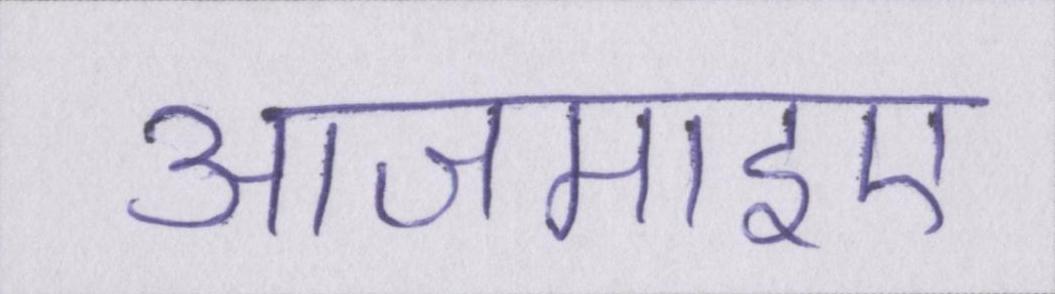 आजमाइए